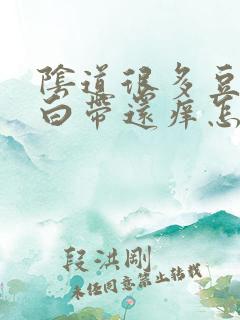 陰道很多豆
白帶還癢怎
段洪剛
未經同意禁止轉載